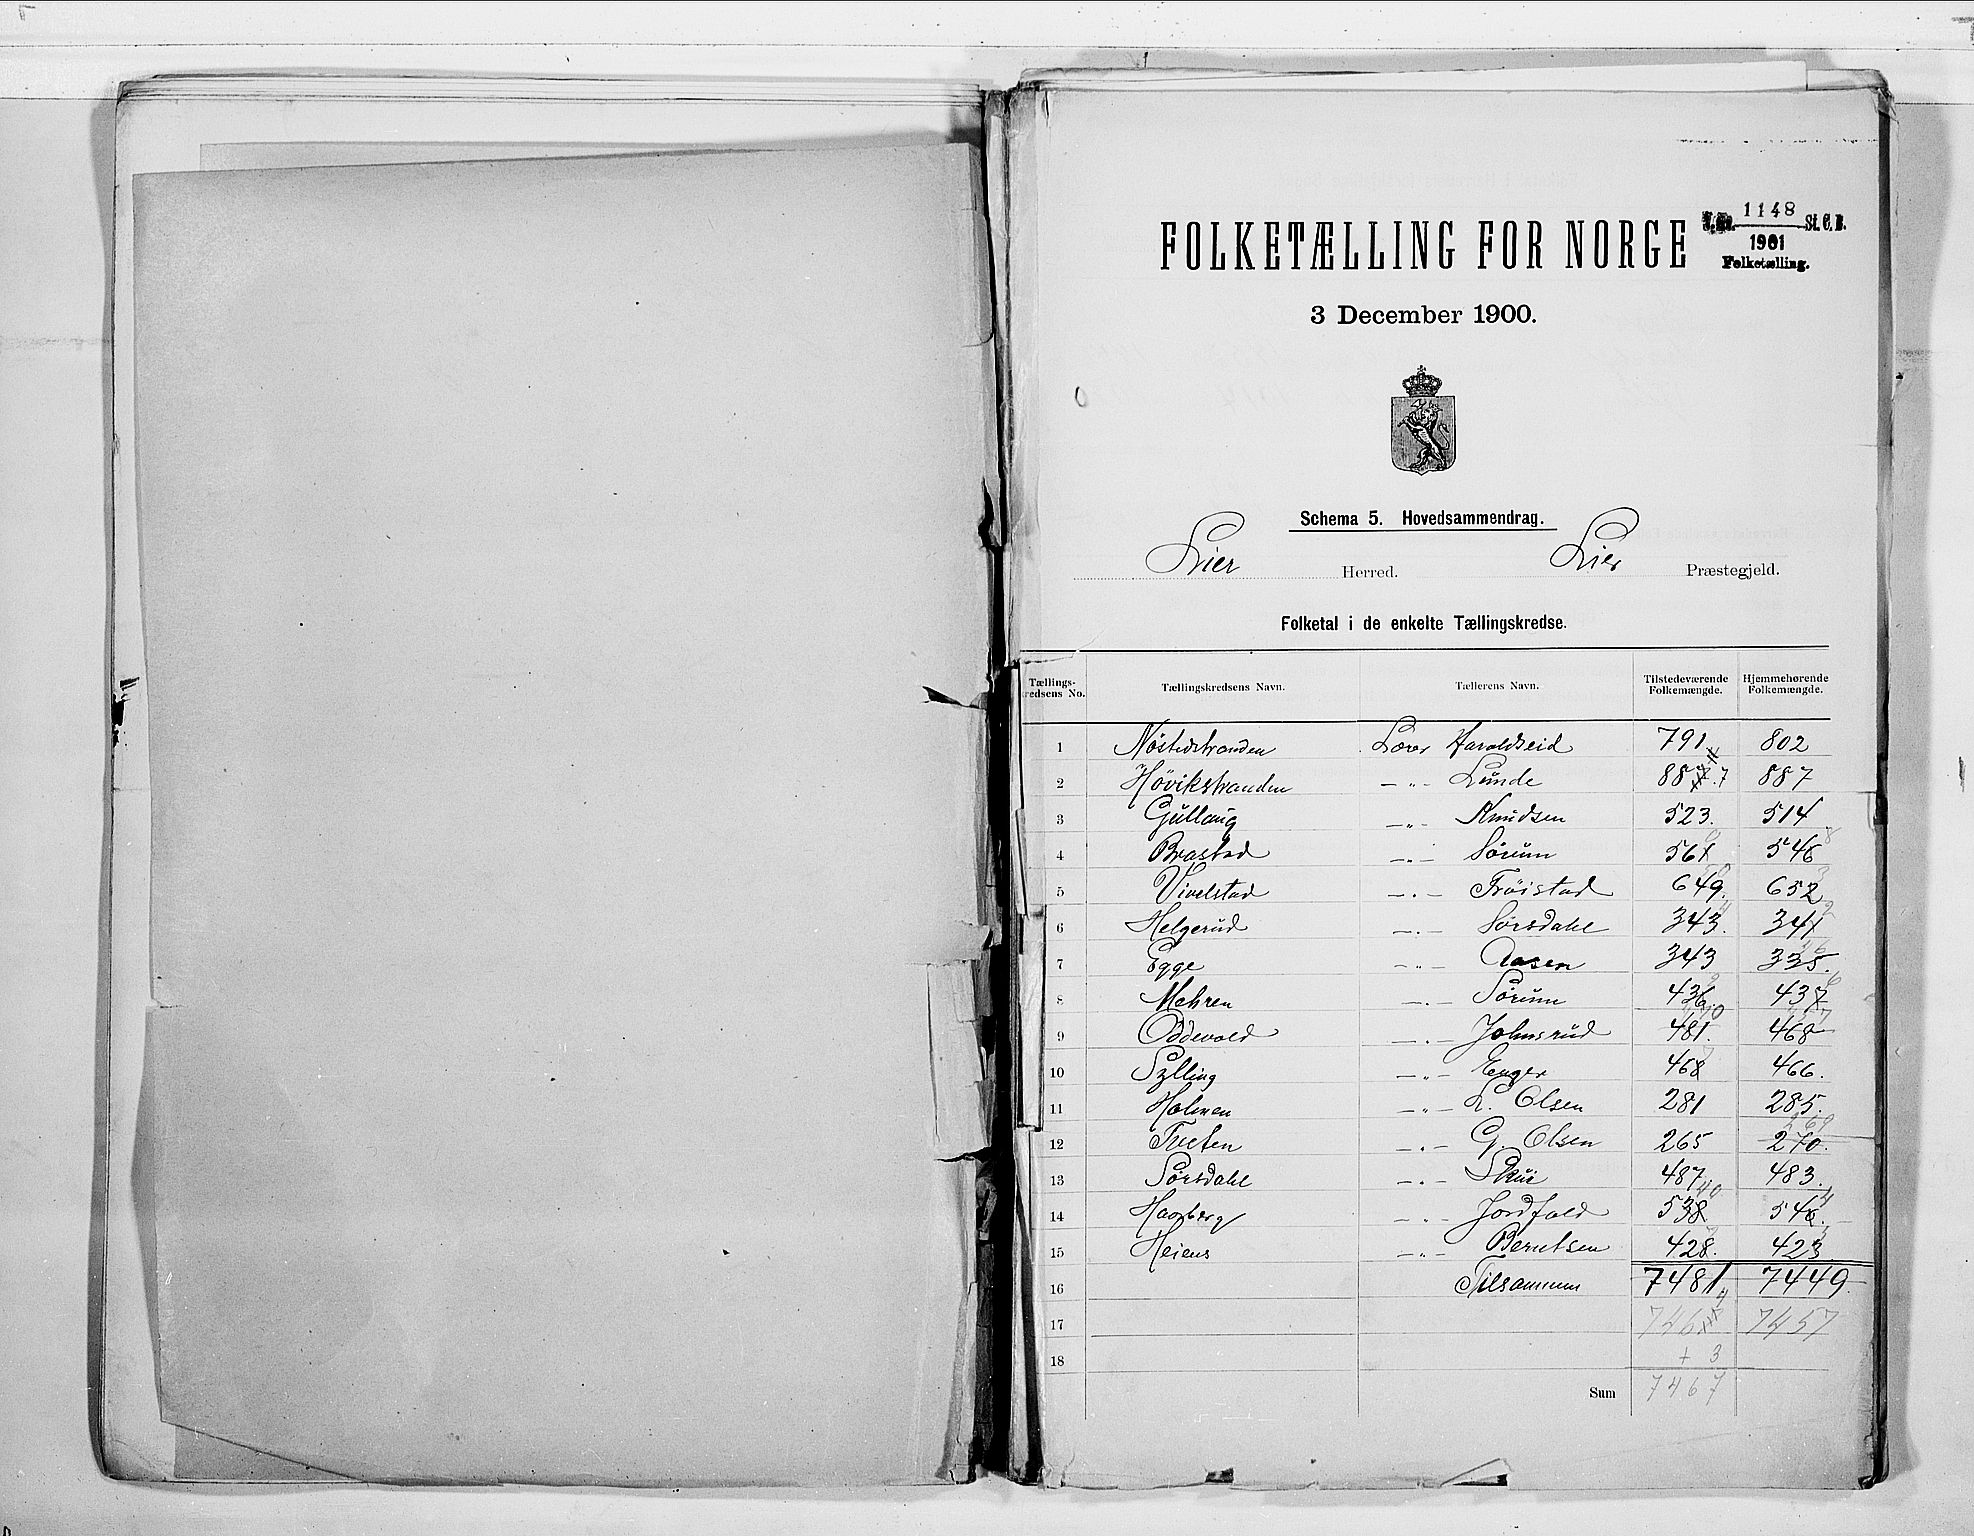 FOLKETÆLLING FOR NORGE
J. No. 1148 St. C. B.
1901
Folketælling.
3 December 1900.
Schema 5. Hovedsammendrag.
Lier Herred. Lier Præstegjeld.
Folketal i de enkelte Tællingskredse.
Tællings-kredsens No. Tællingskredsens Navn. Tællerens Navn. Tilstedeværende Folkemængde. Hjemmehørende Folkemængde.
1 Nöstedstranden Lærer Haraldseid 791 802
2 Hövikstranden — „ — Lunde 887 887
3 Gullaug — „ — Knudsen 523. 514
4 Brastad — „ — Sörum 561 546 8
5 Vivelstad — „ — Tröistad 649 652 3
6 Helgerud — „ — Sörsdahl 343. 341 2
7 Egge — „ — Aasen 343 335.
8 Mehren — „ — Sörum 436 437 6
9 Oddevold — „ — Johnsrud 481. 468
10 Sylling — „ — Enger 468 466.
11 Holmen — „ — L. Olsen 281 285.
12 Tveten — „ — G. Olsen 265 270. 269
13 Sörsdahl — „ — Skui 487 483.
14 Haarberg — „ — Jordfald 538 40 546. 4
15 Heiens — „ — Berntsen 428. 423
16 Tilsammen 7481 7449.
17 746 4 7457
18 + 3
Sum 7467